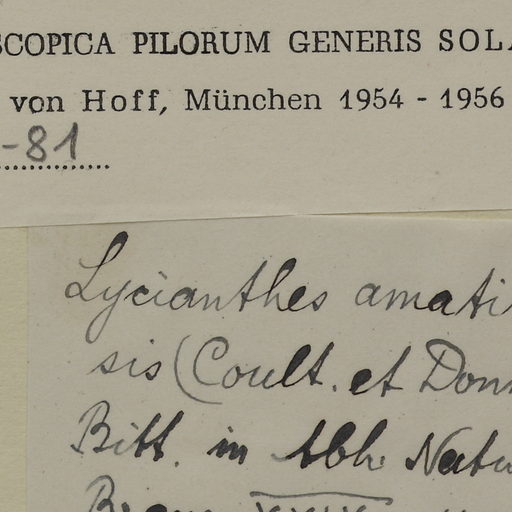 SCOPICA PILORUM GENERIS SOLA
von Hoff, München 1954 - 1956
-81
Lycianthes amati
sis (Coult. et Donn
Bitt. in Abh. Natu